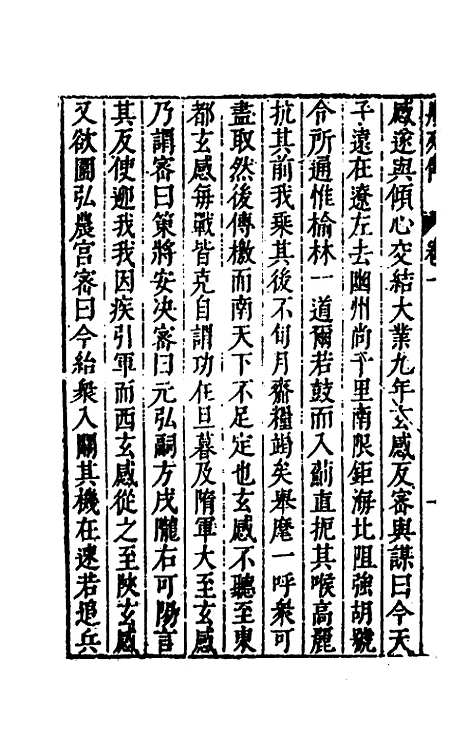 感遂與傾心交結大業九年玄感反審與謀曰今天
子遠在遼左去幽州尚千里南限鉅海比阻強胡號
令所通惟榆林一道爾若鼓而入薊直扼其喉高麗
抗其前我乗其後不旬月齎糧竭矣舉麾一呼衆可
盡取然後傳檄而南天下不足定也玄感不聽至東
都玄感毎戰皆克自謂功在旦暮及隋軍大至玄感
乃謂審曰策將安决審曰元弘嗣方戍隴右可陽言
其反使迎我我因疾引軍而西玄感從之至陝玄感
又欲圍弘農宫審曰今紿衆入關其機在速若追兵
卷一